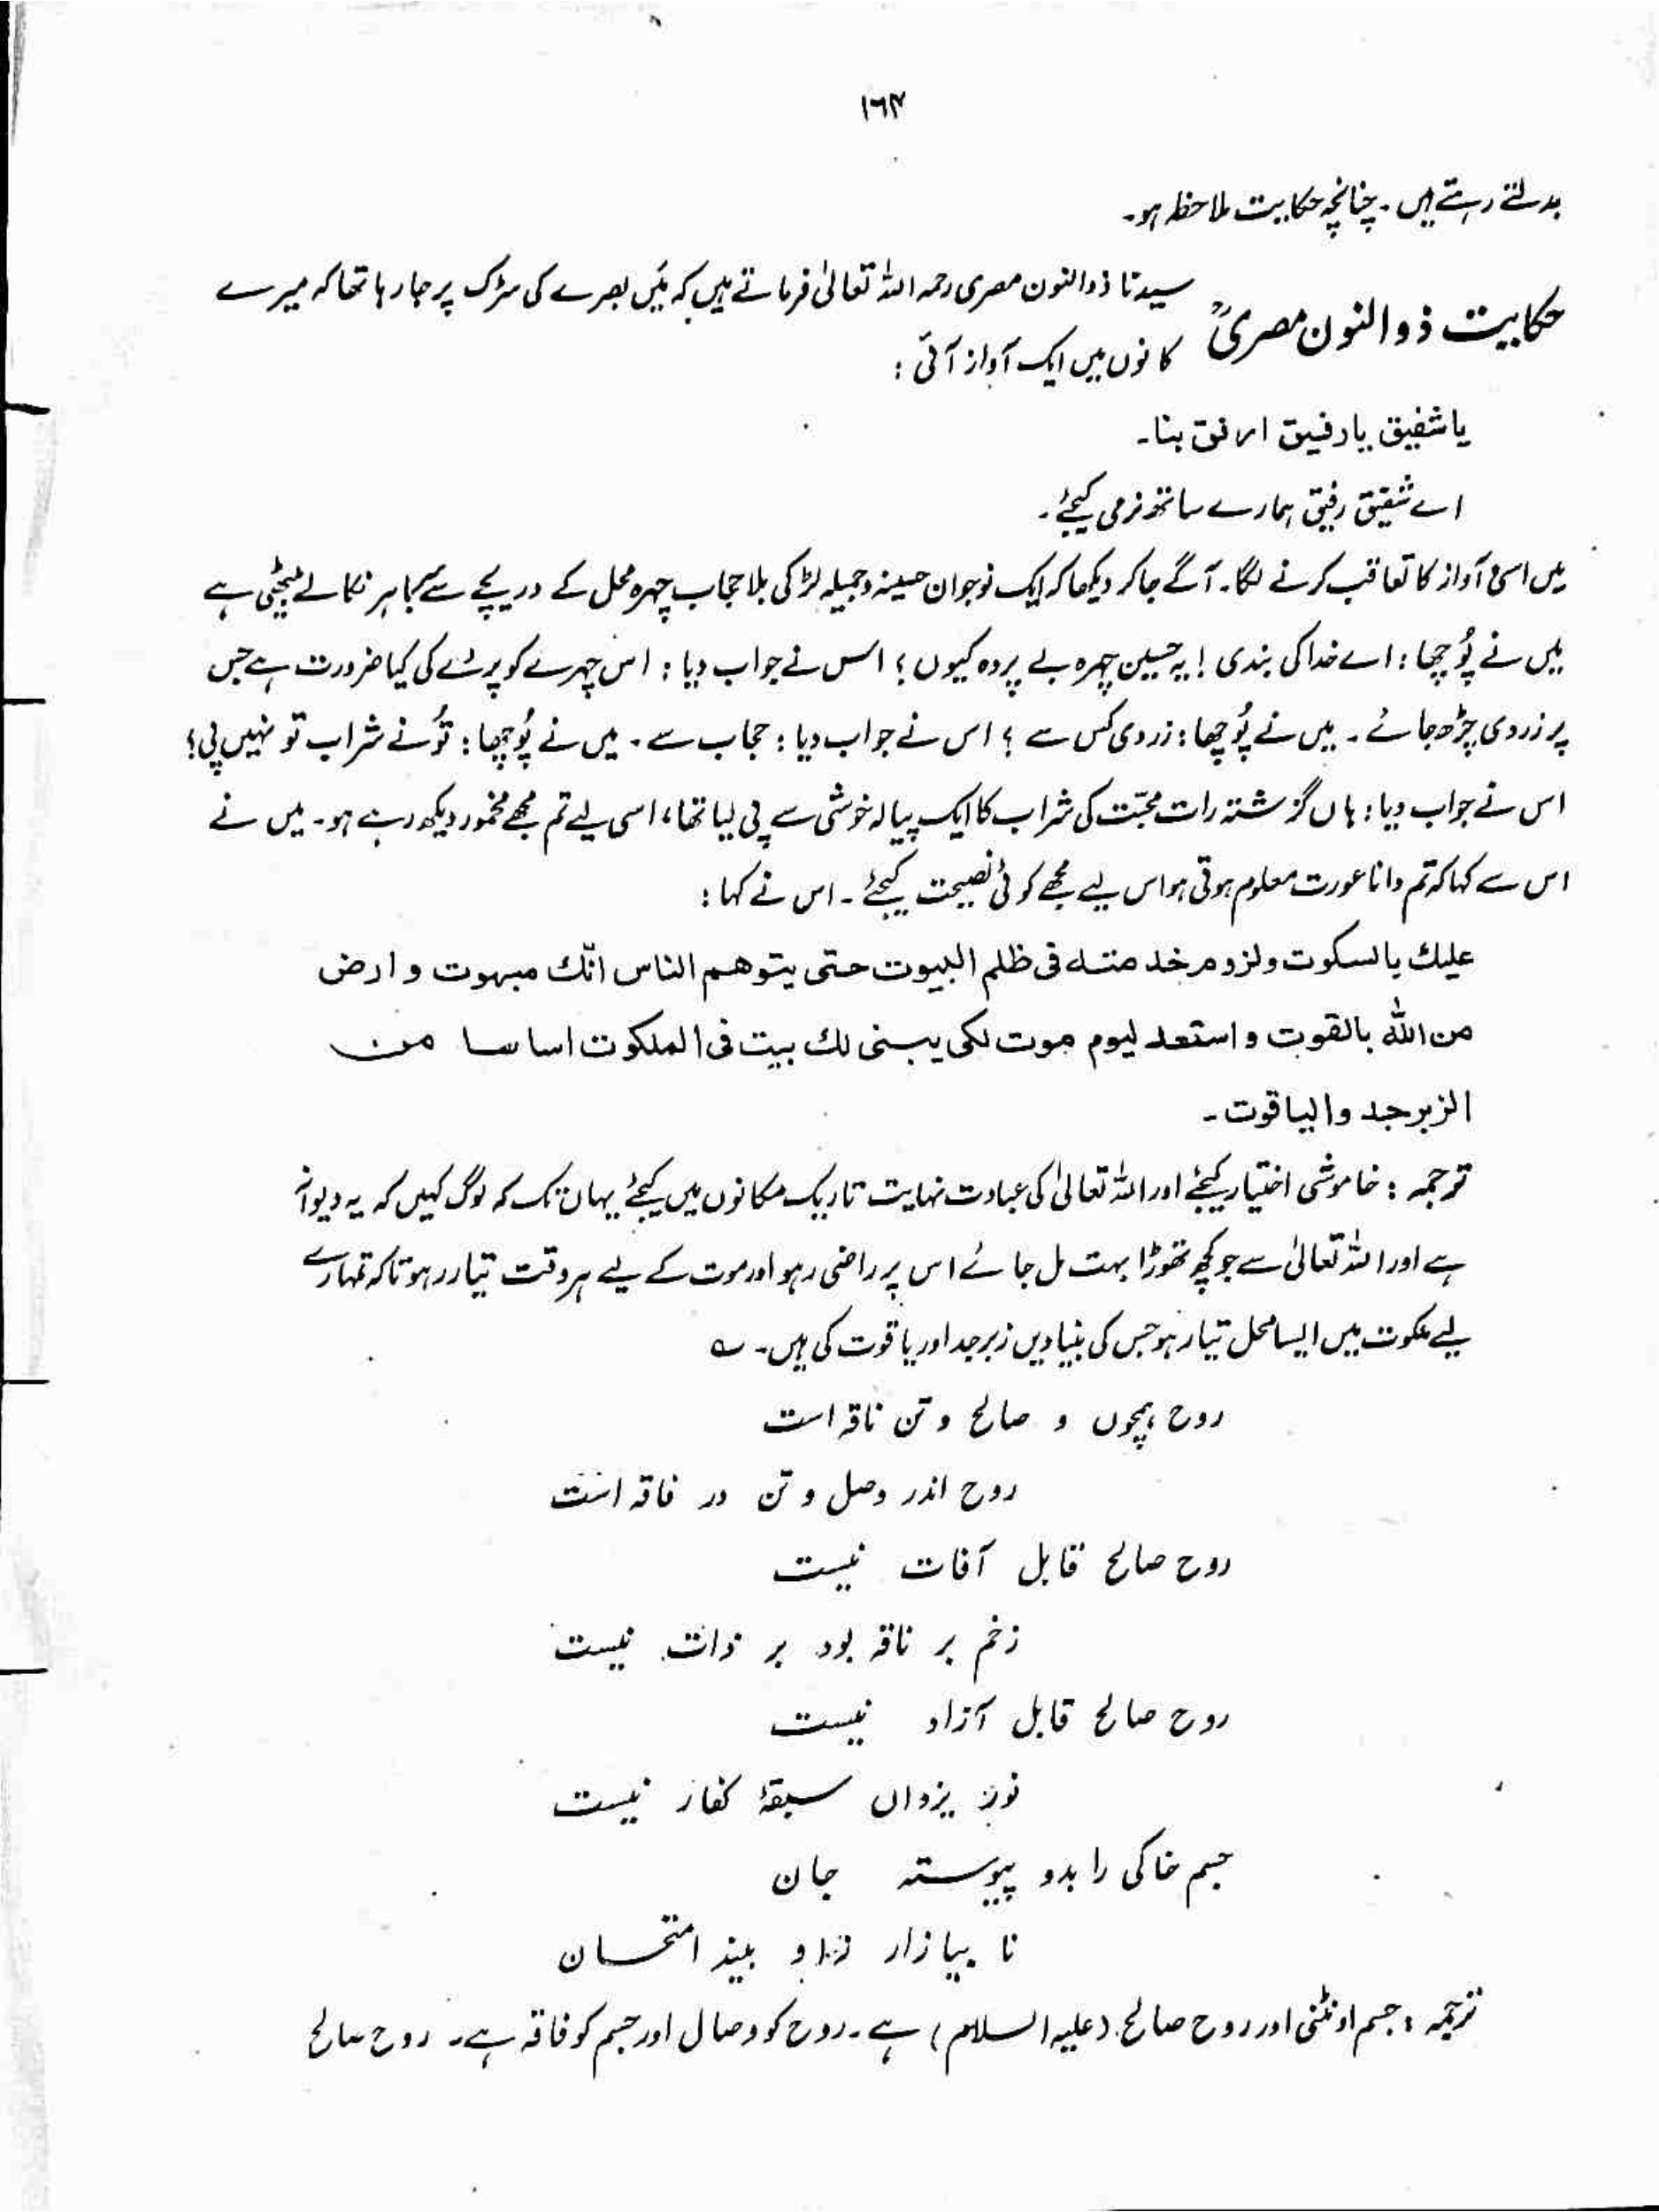 ۱۶۴
بدلتے رہتے ہیں۔ چنانچہ حکایت ملاحظہ ہو۔
حکایت ذوالنون مصریؒ
سیدنا ذوالنون مصری رحمہ اللہ تعالیٰ فرماتے ہیں کہ میں بصرے کی سڑک پر جا رہا تھا کہ میرے
کانوں میں ایک آواز آئی :
یا شفیق یا رفیق ارفق بنا۔
اے شفیق رفیق ہمارے ساتھ نرمی کیجئے۔
میں اسی آواز کا تعاقب کرنے لگا۔ آگے جا کر دیکھا کہ ایک نوجوان حسینہ و جمیلہ لڑکی بلا حجاب چہرہ محل کے دریچے سے باہر نکالے بیٹھی ہے
میں نے پُوچھا : اے خدا کی بندی ! یہ حسین چہرہ بے پردہ کیوں ؟ اس نے جواب دیا : اس چہرے کو پردے کی کیا ضرورت ہے جس
پر زردی چڑھ جائے۔ میں نے پُوچھا : زردی کس سے ؟ اس نے جواب دیا : حجاب سے۔ میں نے پُوچھا : تُو نے شراب تو نہیں پی؟
اس نے جواب دیا : ہاں گزشتہ رات محبّت کی شراب کا ایک پیالہ خوشی سے پی لیا تھا، اسی لیے تم مجھے مخمور دیکھ رہے ہو۔ میں نے
اس سے کہا کہ تم دانا عورت معلوم ہوتی ہو اس لیے مجھے کوئی نصیحت کیجئے۔ اس نے کہا :
علیك بالسکوت ولزوم خدمتہ فی ظلم البیوت حتی یتوھم الناس انّك مبہوت و ارض
من اللہ بالقوت و استعد لیوم موت لکی یبنی لك بیت فی الملکوت اساسا من
الزبرجد والیاقوت۔
ترجمہ : خاموشی اختیار کیجئے اور اللہ تعالیٰ کی عبادت نہایت تاریک مکانوں میں کیجئے یہاں تک کہ لوگ کہیں کہ یہ دیوانہ
ہے اور اللہ تعالیٰ سے جو کچھ تھوڑا بہت مل جائے اس پر راضی رہو اور موت کے لیے ہر وقت تیار رہو تاکہ تمہارے
لیے ملکوت میں ایسا محل تیار ہو جس کی بنیادیں زبرجد اور یاقوت کی ہیں۔ ؎
روح ہمچوں و صالح و تن ناقہ است
روح اندر وصل و تن در فاقہ است
روح صالح قابل آفات نیست
زخم بر ناقہ بود بر ذات نیست
روح صالح قابل آزاد نیست
نور یزداں سبقۂ کفار نیست
جسم خاکی را بدو پیوستہ جان
تا بیازار ند او بیند امتحان
ترجمہ : جسم اونٹنی اور روح صالح (علیہ السلام) ہے۔ روح کو وصال اور جسم کو فاقہ ہے۔ روح صالح